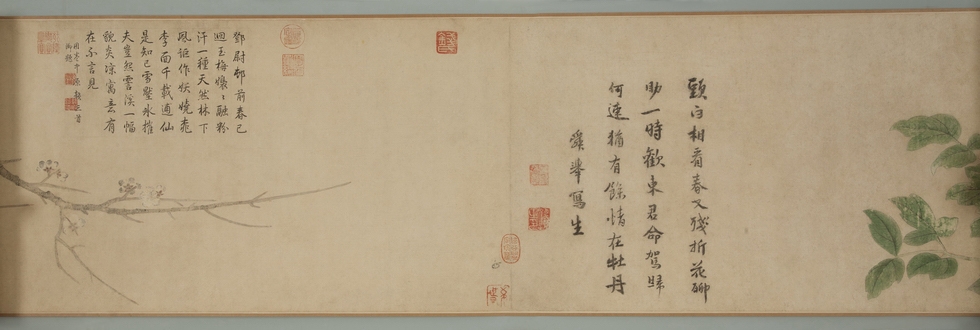 頭白相看春又殘折花聊
助一時歡東君命駕歸
何速猶有餘情在牡丹
舜舉寫生
鄧尉邨前春已
迴玉梅融粉
汗一種天然林下
風詎作妖嬈桃
李面千載逋仙
是知己雪壓氷摧
夫豈怨霅溪一幅
貌炎涼寓意有
在不言見
御題